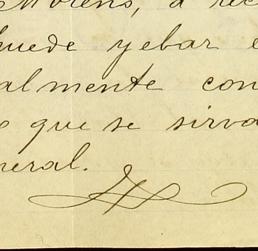 Molens, a rec
uede yebar e
almente con
que se sirva
neral.